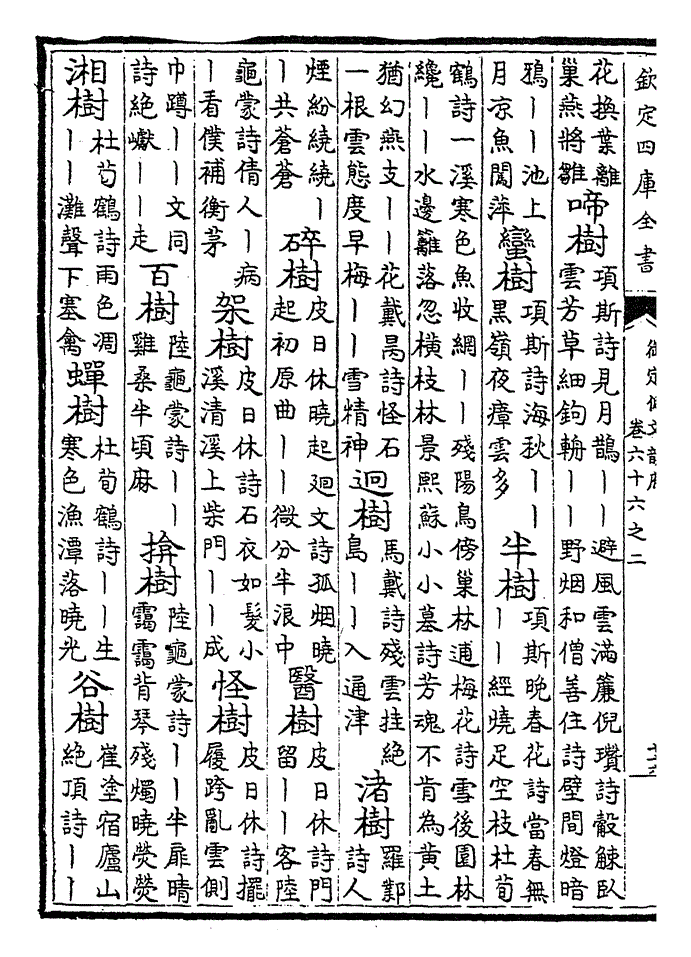 欽定四庫全書
御定佩文韻府
卷六十六之二
花換葉離
巢燕將雛
啼樹
項斯詩見月鵲丨丨避風雲滿簾倪瓚詩觳觫臥
雲芳草細鉤輈丨丨野烟和僧善住詩壁間燈暗
鴉丨丨池上
月凉魚闖萍
蠻樹
項斯詩海秋丨丨
黑嶺夜瘴雲多
半樹
項斯晚春花詩當春無
丨丨經燒足空枝杜荀
鶴詩一溪寒色魚收網丨丨殘陽鳥傍巢林逋梅花詩雪後園林
纔丨丨水邊籬落忽橫枝林景熙蘇小小墓詩芳魂不肯為黃土
猶幻燕支丨丨花戴昺詩怪石
一根雲態度早梅丨丨雪精神
迥樹
馬戴詩殘雲挂絶
島丨丨入通津
渚樹
羅鄴
詩人
煙紛繞繞丨
丨共蒼蒼
碎樹
皮日休曉起廻文詩孤烟曉
起初原曲丨丨微分半浪中
醫樹
皮日休詩門
留丨丨客陸
龜蒙詩倩人丨病
丨看僕補衡茅
架樹
皮日休詩石衣如髮小
溪清溪上柴門丨丨成
怪樹
皮日休詩擺
履跨亂雲側
巾蹲丨丨文同
詩絶巘丨丨走
百樹
陸龜蒙詩丨丨
雞桑半頃麻
揜樹
陸龜蒙詩丨丨半扉晴
靄靄背琴殘燭曉熒熒
湘樹
杜芍鶴詩雨色凋
丨丨灘聲下塞禽
蟬樹
杜荀鶴詩丨丨生
寒色漁潭落曉光
谷樹
崔塗宿廬山
絶頂詩丨丨